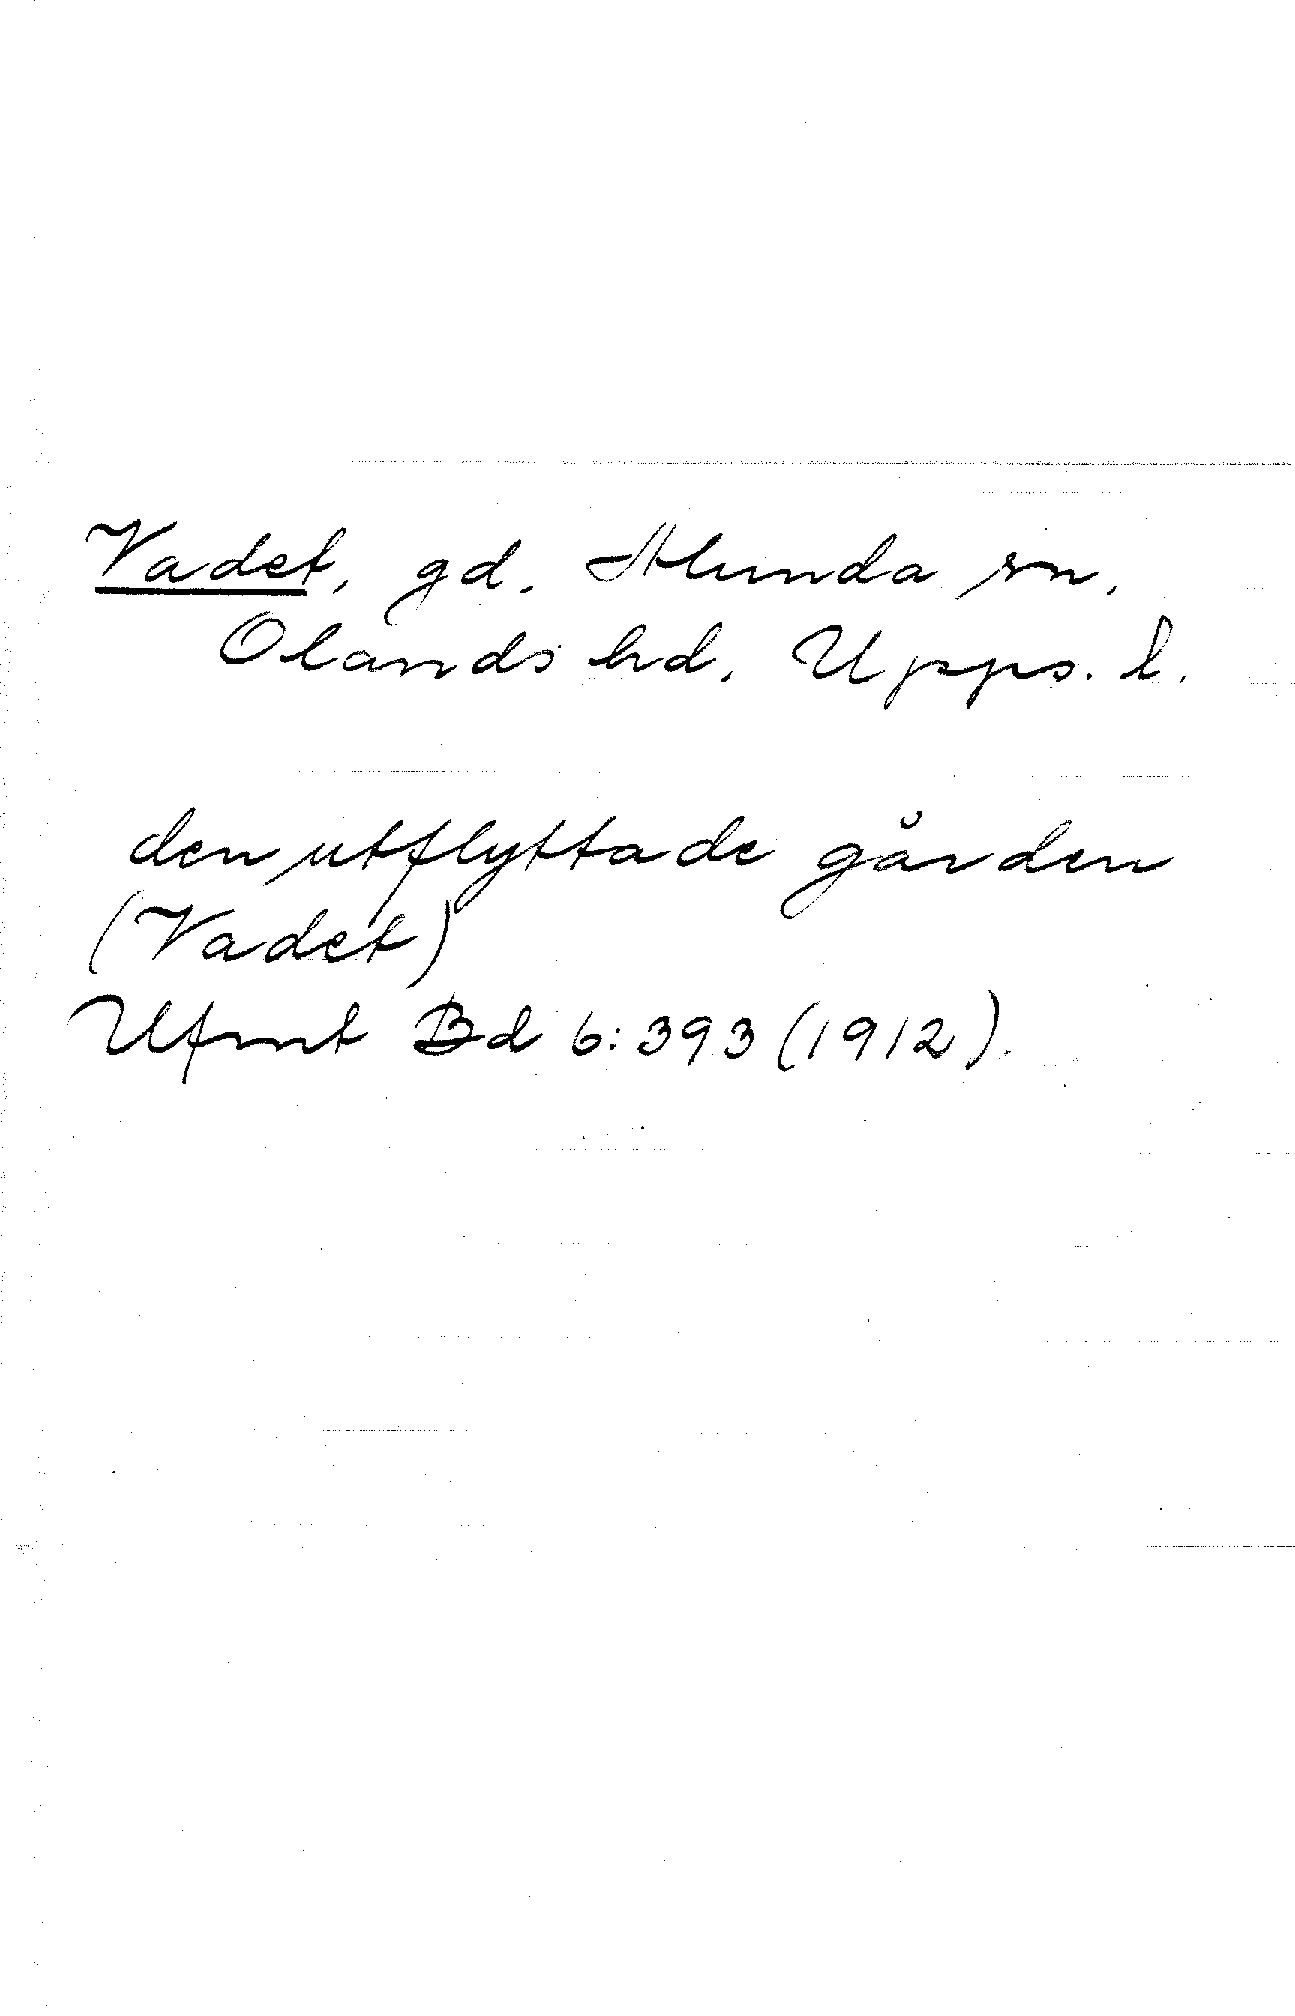 Vadet, gd. Alunda sn.
Olands hd, Upps. l.
den utflyttade gården
(Vadet)
Ufmt Bd 6:393 (1912).